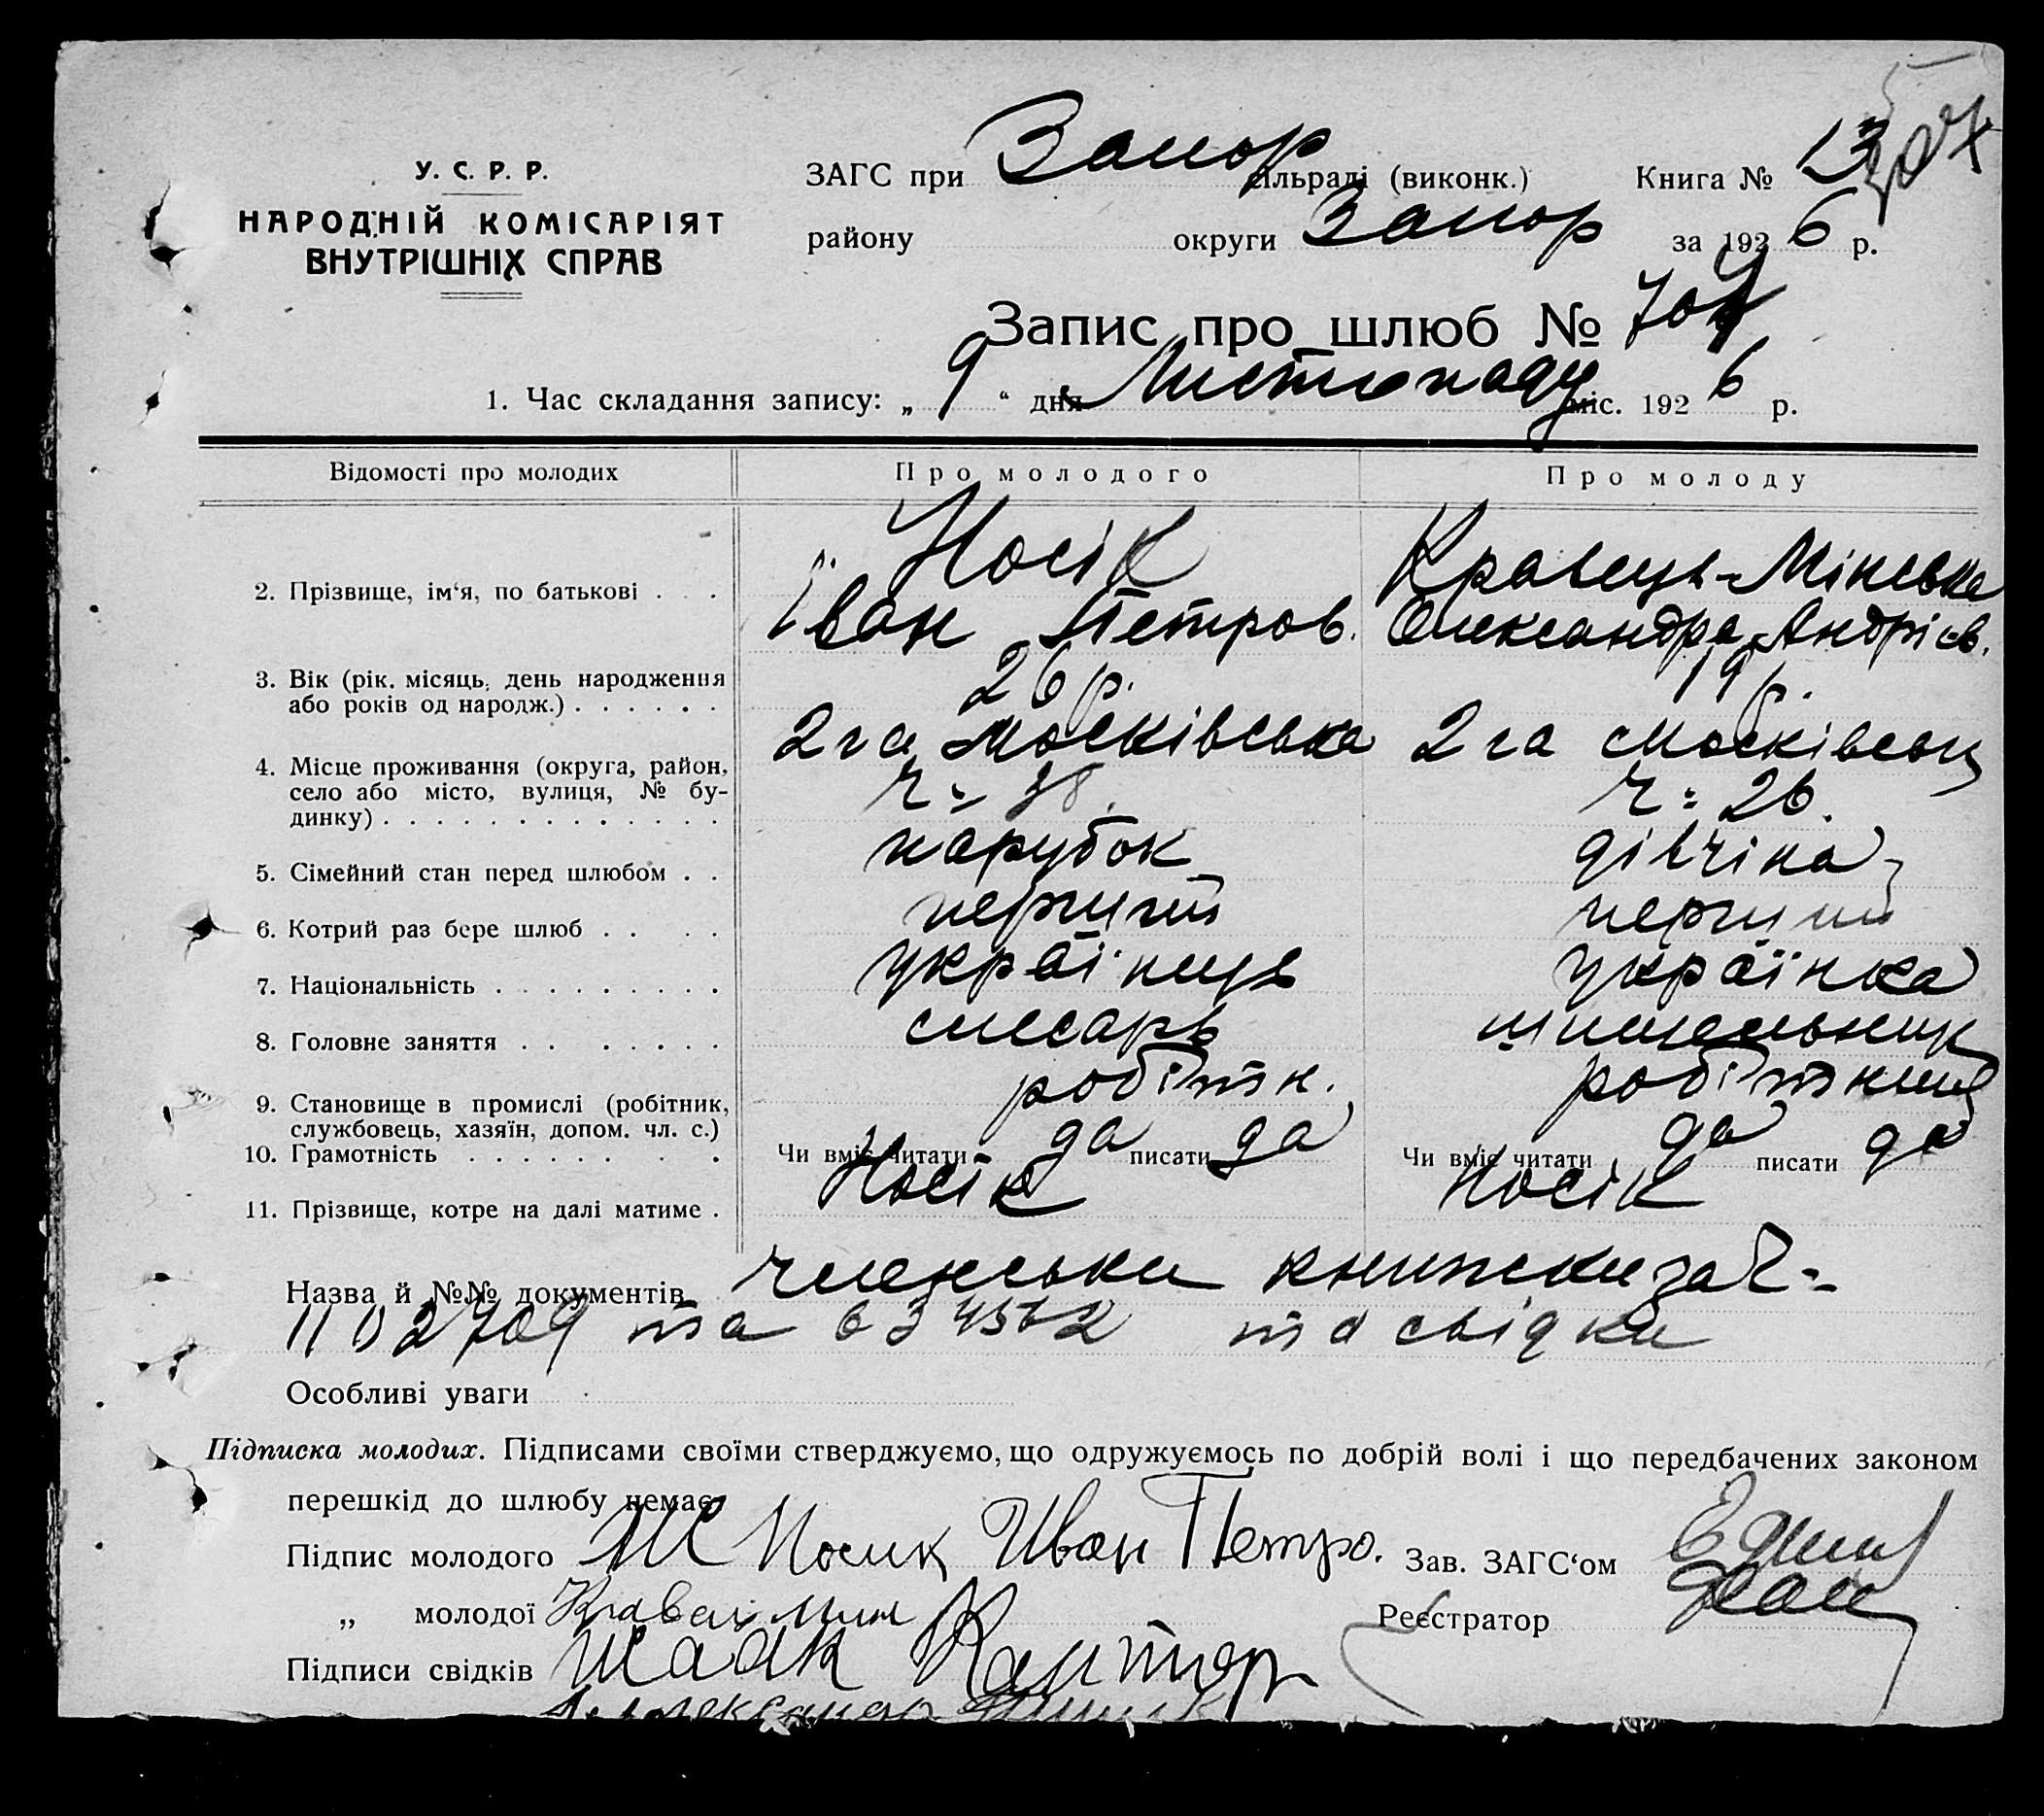 У. С. Р. Р.
НАРОДНІЙ КОМІСАРІЯТ
ВНУТРІШНІХ СПРАВ
ЗАГС при Запор сільраді (виконк.) Книга № 13
району округи Запор за 1926 р.
Запис про шлюб № 704
1. Час складання запису: „ 9 “ дня Листопаду міс. 1926 р.
Відомості про молодих Про молодого Про молоду
2. Прізвище, ім‘я, по батькові . . . Носік Кравець-Мінська
Іван Петров. Олександра Андріев.
3. Вік (рік. місяць, день народження 26 р. 19 р.
або років од народж.) . . . . . .
4. Місце проживання (округа, район, 2га Московська 2га Московськ
село або місто, вулиця, № бу- ч= 38. ч= 26.
динку) . . . . . . . . . . . . .
5. Сімейний стан перед шлюбом . . парубок дівчіна
6. Котрий раз бере шлюб . . . . перший перший
7. Національність . . . . . . . . . українць українка
8. Головне заняття . . . . . . . слесарь
9. Становище в промислі (робітник, робітн. робітниця
службовець, хазяїн, допом. чл. с.)
10. Грамотність . . . . . . . . Чи вміє читати да писати да Чи вміє читати да писати да
11. Прізвище, котре на далі матиме . Носік Носік
Назва й №№ документів членськи книжки за ч=
1102709 та 634562 та свідки
Особливі уваги
Підписка молодих. Підписами своїми стверджуємо, що одружуємось по добрій волі і що передбачених законом
перешкід до шлюбу немає
Підпис молодого Носик Иван Петро. Зав. ЗАГС‘ом
„ молодої Кравец Мин Реєстратор
Підписи свідків